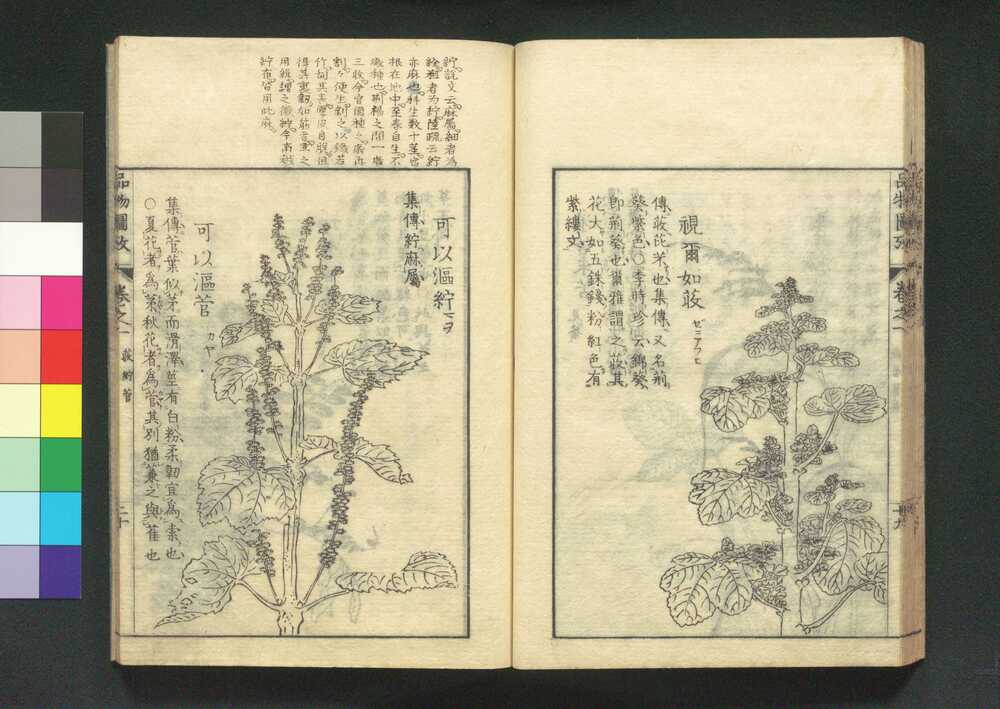 視爾如荍 ゼニアフヒ
傳荍芘芣也集傳又名荊
葵紫色○李時珍云錦葵
即荊葵也爾雅謂之荍其
花大如五銖錢粉紅色有
紫縷文
紵說文云麻屬細者為
絟粗者为紵陸疏云紵
亦麻也科生数十莖宿
根在地中至春自生不
歲種也荊楊之間一歲
三收今官園種之歲再
割割便生剝之以鐵若
竹刮其表厚皮自脫但
得其裏韌如筋者煮之
用緝謂之徽紵今南越
紵布皆用此麻
可以漚紵 ヲ
集傳紵麻屬
可以漚菅 カヤ
集傳菅葉似茅而滑澤莖有白粉柔韌宜為索也
○夏花者為茅秋花者為菅其別猶蒹之與萑也
品物圖攷 卷之一 荍紵菅 二十
品物圖攷 卷之一